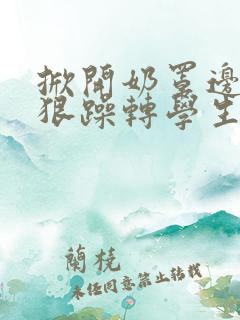 掀開奶罩邊
狠躁轉學生
蘭橈
未经同意禁止转载